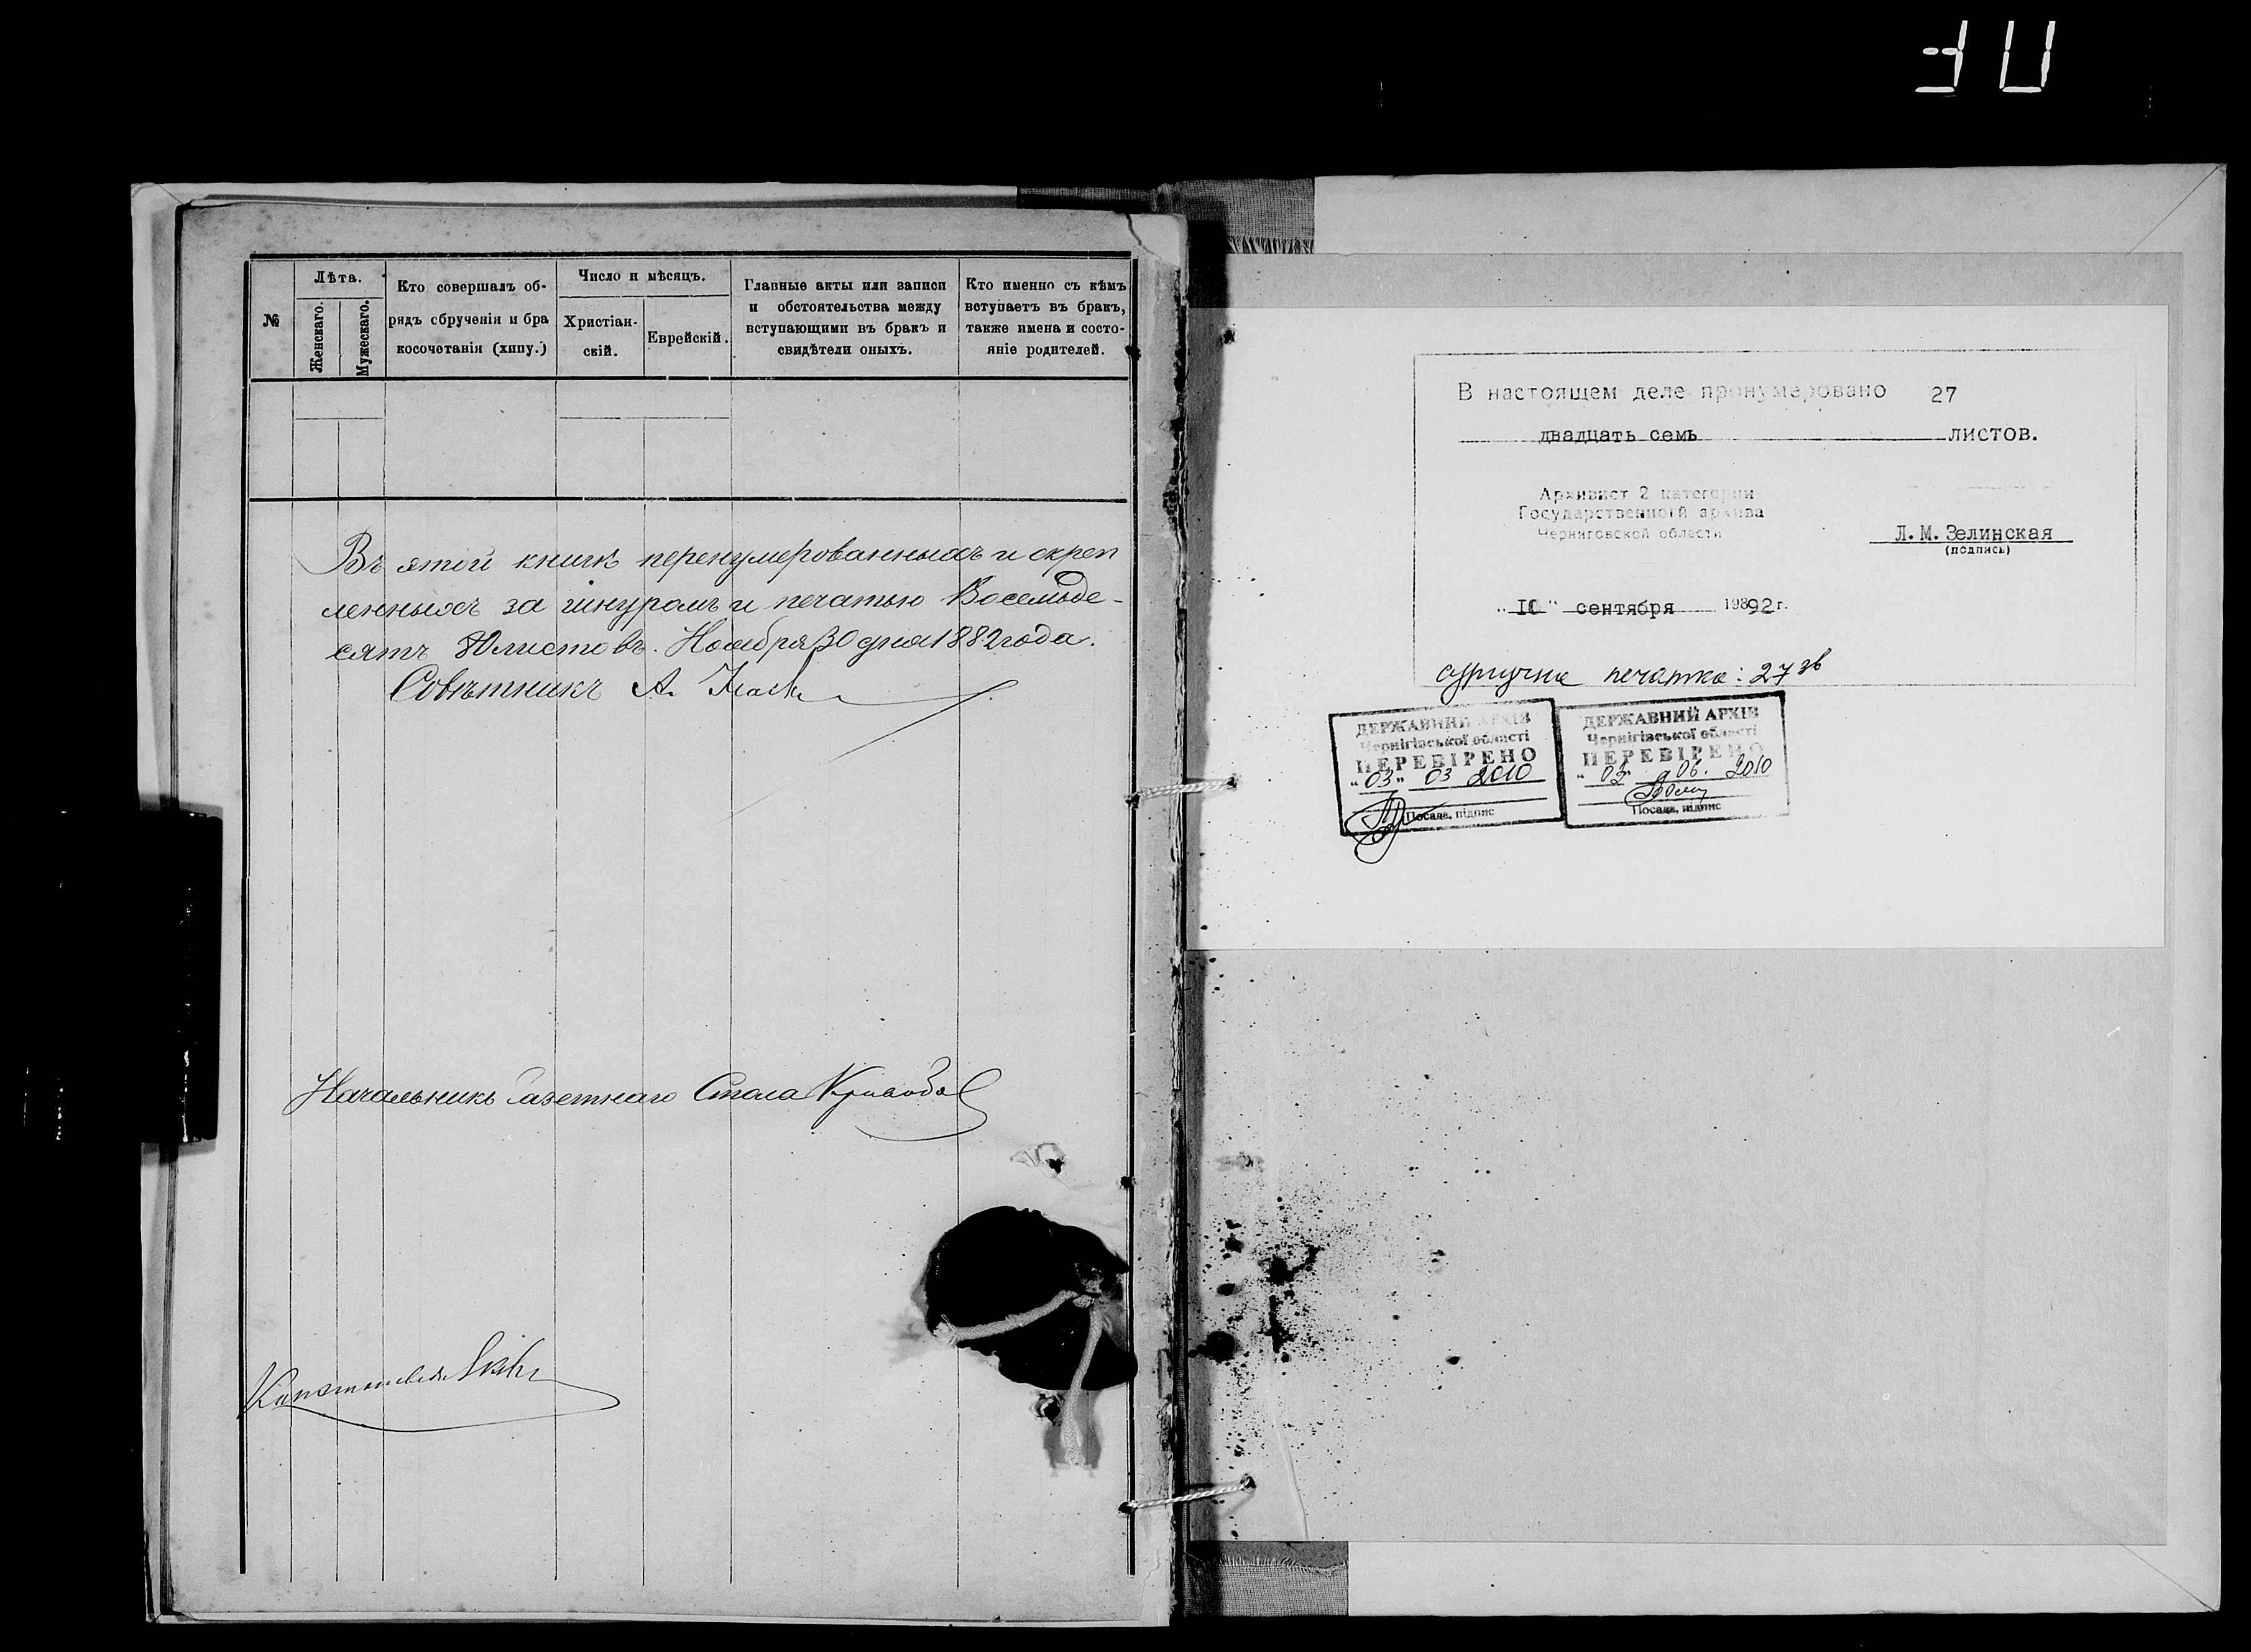 №
Лѣта.
Женскаго.
Мужескаго.
Кто совершалъ об-
рядъ обрученія и бра
косочетанія (хипу.)
Число и мѣсяцъ.
Христіан-
скій.
Еврейскій.
Главные акты или записи
и обстоятельства между
вступающими въ бракъ и
свидѣтели оныхъ.
Кто именно съ кѣмъ
вступаетъ въ бракъ,
также имена и состо-
яніе родителей.
Въ этой книгѣ перенумерованныхъ и скреп
ленныхъ за шнуромъ и печатью Восемьде-
сятъ 80 листовъ. Ноября 30 дня 1882 года.
Совѣтникъ А.
Начальникъ Газетнаго Стола
В настоящем деле пронумеровано 27
двадцать семь листов.
Архивист 2 категории
Государственной архива
Черниговской области
Л.М.Зелинская
(подпись)
"10" сентября 19892г.
сургучна печатка: 27 зв
ДЕРЖАВНИЙ АРХІВ
Чернігівської області
ПЕРЕВІРЕНО
"03" 03 2010
Посада, підпис
ДЕРЖАВНИЙ АРХІВ
Чернігівської області
ПЕРЕВІРЕНО
"03" 06. 2010
Посада, підпис